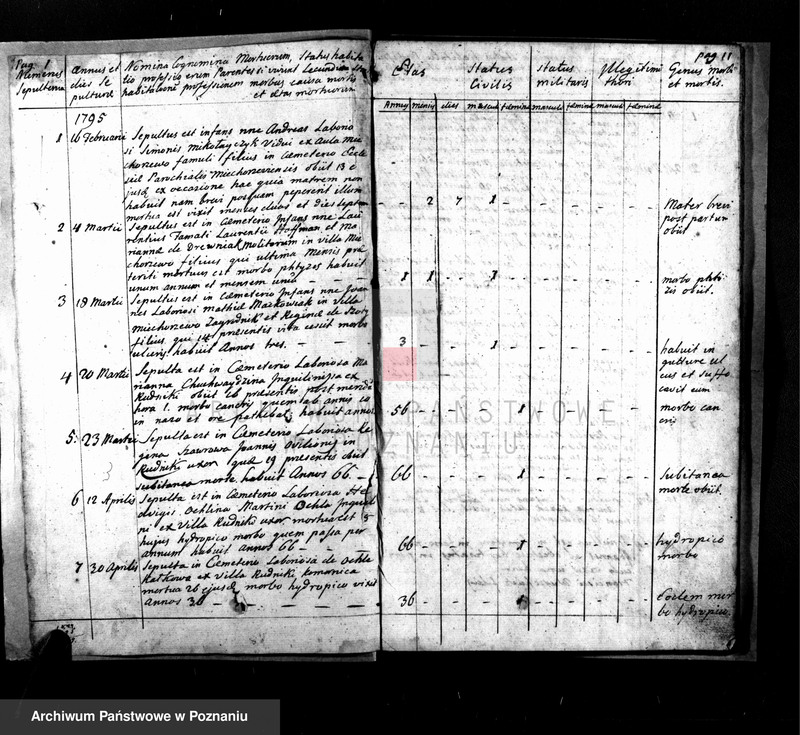 Pag. 1
Numerus
Sepulturae
Annus et
dies Se
pulturae
Nomina Cognomina Mortuorum, Status habita
tio professio eorum Parentes si vivunt
habitatione professionem morbus causa mortis
et aetas mortuorum
1795
1 16 Februarii Sepultus est infans nne Andreas Laborio
si Simonis Mikołayczyk Vidui ex Aula Mie
chorzewo famuli filius in Cemeterio Eccle
siae Parochialis Miechorzevensis obiit 13 e
jusd ex occasione hac quia matrem non
habuit nam brevi postquam pepererit illum
mortua est vixit menses duos et dies septem
2 4 Martii Sepultus est in Cemeterio Infans nne Lau
rentius Famati Laurentii Hoffman et Ma
rianna de Drewniak Molitorum in villa Mie
chorzewo filius qui ultima Mensis prae
teriti mortuus est morbo phtyzes habuit
unum annum et mensem unum
3 18 Martii Sepultus est in Cemeterio Infans nne Joan
nes Laboriosi Mathiae Maćkowiak in Villa
Miechorzewo Zagrodnik et Reginae de
filius, qui praesentis vita cessit morbo
ulceris habuit Annos tres.
4 20 Martii Sepulta est in Cemeterio Laboriosa Ma
rianna Inquilinissa ex
Rudniki obiit praesentis post meridie
hora 1. morbo cancri quem ab annis
in naso et ore patiebat, habuit annos
5 23 Martii Sepulta est in Cemeterio Laboriosa Re
gina Szavrawa Joannis Ovilionis in
Rudniki uxor quae 19 praesentis obiit
subitanea morte habuit Annos 66.
6 12 Aprilis Sepulta est in Cemeterio Laboriosa He
dvigis Ochlina Martini Ochla Inquili
ni ex Villa Rudniki uxor mortua est
hujus hydropico morbo quem passa per
annum habuit Annos 66
7 30 Aprilis Sepulta in Cemeterio Laboriosa de Ochla
ex Villa Rudniki komornica
mortua 26 ejusd morbo hydropico vixit
Annos 36
pag 11
Etas
Status
Civilis
Status
militaris
Illegitimi
thori
Genus morti
et mortis.
Anney mensis dies mascul femine mascul femine mascul femine
2 7 1
Mater brevi
post partum
obiit
1 1 1
morbo phti
zis obiit.
3 1
habuit in
gutture ul
cus et suffo
cavit eum
56 1
morbo can
cris
66 1
Subitanea
morte obiit.
66 1
hydropico
morbo
36
Eodem mor
bo hydropico.
PAŃSTWOWE
POZNANIU
Archiwum Państwowe w Poznaniu